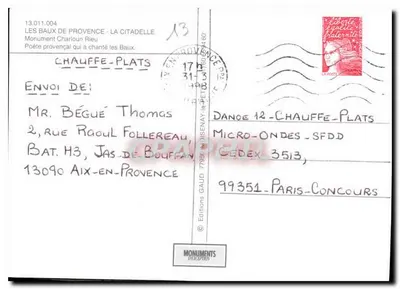 13.011.004
LES BAUX DE PROVENCE - LA CITADELLE
Monument Charloun Rieu
Poète provençal qui a chanté les Baux.
13
CHAUFFE-PLATS
ENVOI DE:
MR. BÉGUÉ Thomas
2, RUE RAOUL FOLLEREAU
BAT. H3, JAS-DE-BOUFFAN
13090 AIX-EN-PROVENCE
17 H
31-3
© Editions GAUD
DANOE 12-CHAUFFE-PLATS
MICRO-ONDES-SFDD
CEDEX 3513,
99351-PARIS-CONCOURS
MONUMENTS